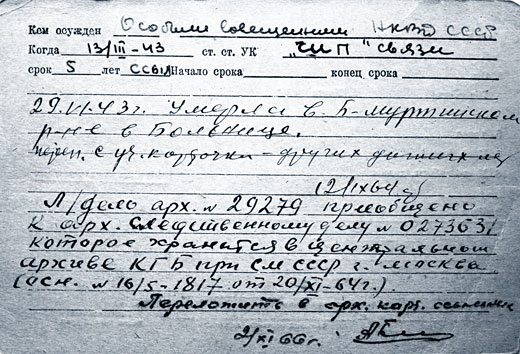 Кем осужден Особым совещанием НКВД СССР
Когда 13/III-43 ст. ст. УК "ШП" связи
срок 5 лет ссыл Начало срока конец срока
29.VI.43г. Умерла в Б-Муртинском
р-не в Больнице.
перен. с уч. карточки - других данных нет
12/IX64г
Л/дело арх. № 29279 приобщено
к арх. следственному делу №
которое хранится в центральном
архиве КГБ при СМ СССР г. Москва
(осн. № 16/5-1817 от 20/XI-64г.).
Переложить в арх. карт. ссыльных
2/XI 66г.